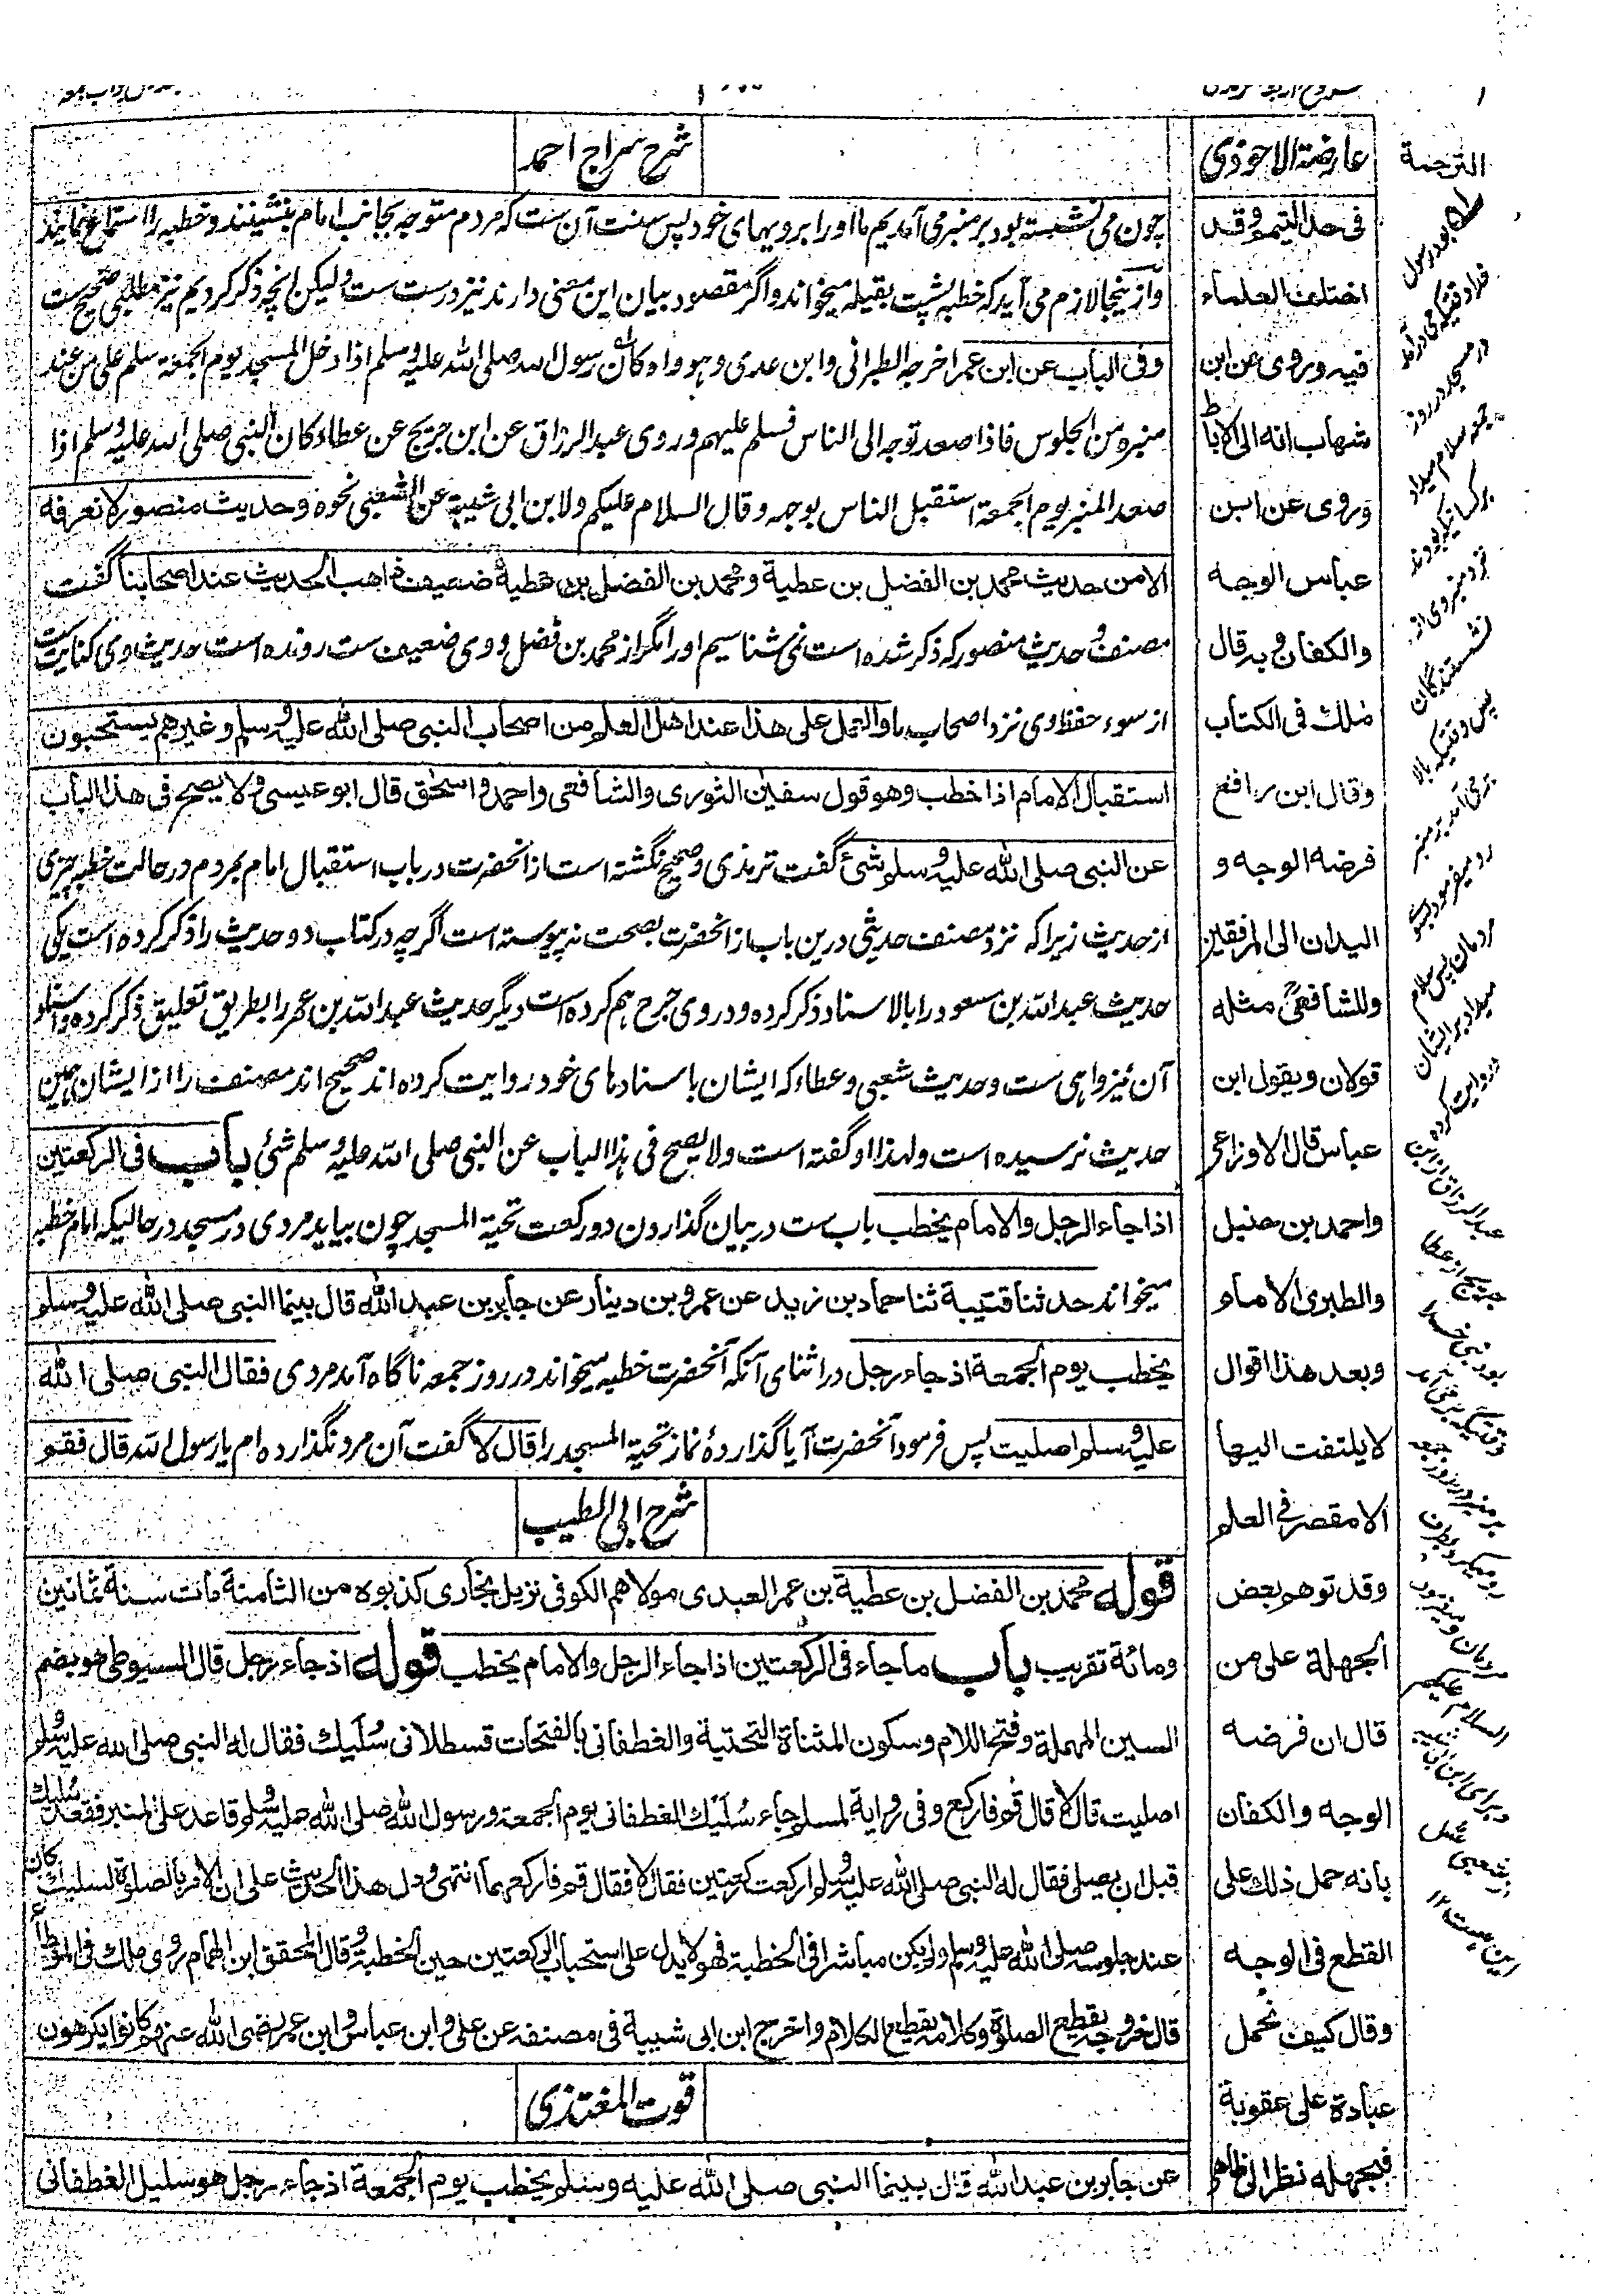 الترجمة
عارضة الاحوذی
شرح سراج احمد
چون می نشسته بود بر منبر می آمدیم ما او را برویهای خود پس سنت آن ست که مردم متوجه بجانب امام بنشینند و خطبه را استماع نمایند
و از ینجا لازم می آید که خطبه پشت بقبله میخواند و اگر مقصود بیان این معنی دارند نیز درست ست ولیکن انچه ذکر کردیم نیز مطلبی صحیح ست
وفی الباب عن ابن عمر اخرجه الطبرانی وابن عدی وهو واه کان رسول الله صلی الله علیه وسلم اذا دخل المسجد یوم الجمعة سلم علی من عند
منبره من الجلوس فاذا صعد توجه الی الناس فسلم علیهم وروی عبد الرزاق عن ابن جریج عن عطاء کان النبی صلی الله علیه وسلم اذا
صعد المنبر یوم الجمعة استقبل الناس بوجهه وقال السلام علیکم ولابن ابی شیبة عن الشعبی نحوه وحدیث منصور لا نعرفه
الا من حدیث محمد بن الفضل بن عطیة ومحمد بن الفضل بن عطیة ضعیف ذاهب الحدیث عند اصحابنا گفت
مصنف و حدیث منصور که ذکر شده است نمی شناسیم او را مگر از محمد بن فضل و وی ضعیف ست رونده است حدیث وی کنایت ست
از سوء حفظ وی نزد اصحاب ما والعمل علی هذا عند اهل العلم من اصحاب النبی صلی الله علیه وسلم وغیرهم یستحبون
استقبال الامام اذا خطب وهو قول سفین الثوری والشافعی واحمد واسحٰق قال ابو عیسی ولا یصح فی هذا الباب
عن النبی صلی الله علیه وسلم شئ گفت ترمذی و صحیح نگشته است از انحضرت در باب استقبال امام بمردم در حالت خطبه چیزی
از حدیث زیرا که نزد مصنف حدیثی درین باب از انحضرت بصحت نه پیوسته است اگرچه در کتاب دو حدیث را ذکر کرده است یکی
حدیث عبد الله بن مسعود را بالاسناد ذکر کرده و در وی جرح هم کرده است دیگر حدیث عبد الله بن عمر را بطریق تعلیق ذکر کرده و اسناد
آن نیز واهی ست و حدیث شعبی و عطاء که ایشان باسنادهای خود روایت کرده اند صحیح اند مصنف را از ایشان همین
حدیث نرسیده است ولهذا او گفته است ولا یصح فی هذا الباب عن النبی صلی الله علیه وسلم شئ باب فی الرکعتین
اذا جاء الرجل والامام یخطب باب ست در بیان گذاردن دو رکعت تحیة المسجد چون بیاید مردی در مسجد در حالیکه امام خطبه
میخواند حدثنا قتیبة ثنا حماد بن زید عن عمرو بن دینار عن جابر بن عبد الله قال بینما النبی صلی الله علیه وسلم
یخطب یوم الجمعة اذ جاء رجل در اثنای آنکه آنحضرت خطبه میخواند در روز جمعه ناگاه آمد مردی فقال النبی صلی الله
علیه وسلم اصلیت پس فرمود آنحضرت آیا گذاردهٔ نماز تحیة المسجد را قال لا گفت آن مرد نگذارده ام یا رسول الله قال فقم
شرح ابی الطیب
قوله محمد بن الفضل بن عطیة بن عمر العبدی مولاهم الکوفی نزیل بخاری کذبوه من الثامنة مات سنة ثمانین
ومائة تقریب باب ما جاء فی الرکعتین اذا جاء الرجل والامام یخطب قوله اذ جاء رجل قال السیوطی هو بضم
السین المهملة وفتح اللام وسکون المثناة التحتیة والغطفانی بالفتحات قسطلانی سُلَیک فقال له النبی صلی الله علیه وسلم
اصلیت قال لا قال قم فارکع وفی روایة لمسلم جاء سُلَیک الغطفانی یوم الجمعة ورسول الله صلی الله علیه وسلم قاعد علی المنبر فقعد سُلیک
قبل ان یصلی فقال له النبی صلی الله علیه وسلم ارکعت رکعتین فقال لا فقال قم فارکعهما انتهی ودل هذا الحدیث علی ان الامر بالصلوة لسلیک کان
عند جلوسه صلی الله علیه وسلم ولم یکن مباشرا فی الخطبة فهو لا یدل علی استحباب الرکعتین حین الخطبة وقال المحقق ابن الهمام روی ملک فی الموطأ
قال خروجه یقطع الصلوة وکلامه یقطع الکلام واخرج ابن ابی شیبة فی مصنفه عن علی وابن عباس وابن عمر رضی الله عنهم کانوا یکرهون
قوت المغتذی
عن جابر بن عبد الله قال بینما النبی صلی الله علیه وسلم یخطب یوم الجمعة اذ جاء رجل هو سلیک الغطفانی
فی حد التیمم وقد
اختلف العلماء
فیه وروی عن ابن
شهاب انه الی الاباط
وروی عن ابن
عباس الوجه
والکفان وبه قال
ملک فی الکتاب
وقال ابن رافع
فرضه الوجه و
الیدان الی المرفقین
وللشافعیؒ مثله
قولان وبقول ابن
عباس قال الاوزاعی
واحمد بن حنبل
والطبری الامام
وبعد هذا اقوال
لا یلتفت الیها
الا مقصر فی العلم
وقد توهم بعض
الجهلة علی من
قال ان فرضه
الوجه والکفان
بانه حمل ذلک علی
القطع فی الوجه
وقال کیف نحمل
عبادة علی عقوبة
فبجهله نظر الی ظاهر
بود رسول
خدا وقتیکه می درآمد
در مسجد در روز
جمعه سلام میداد
بر کسانیکه بودند
نزد منبر وی از
نشستندگان
پس وقتیکه بالا
برمی آمد بر منبر
رو میفرمود بسوی
مردمان پس سلام
میداد بر ایشان
و روایت کرده
عبد الرزاق از ابن
جریج از عطا
بود نبی خدا
وقتیکه برمی آمد
بر منبر در روز جمعه
رو میکرد بطرف
مردمان و میفرمود
السلام علیکم
و برای ابن ابی شیبه
از شعبی مثل
این ست ١٢